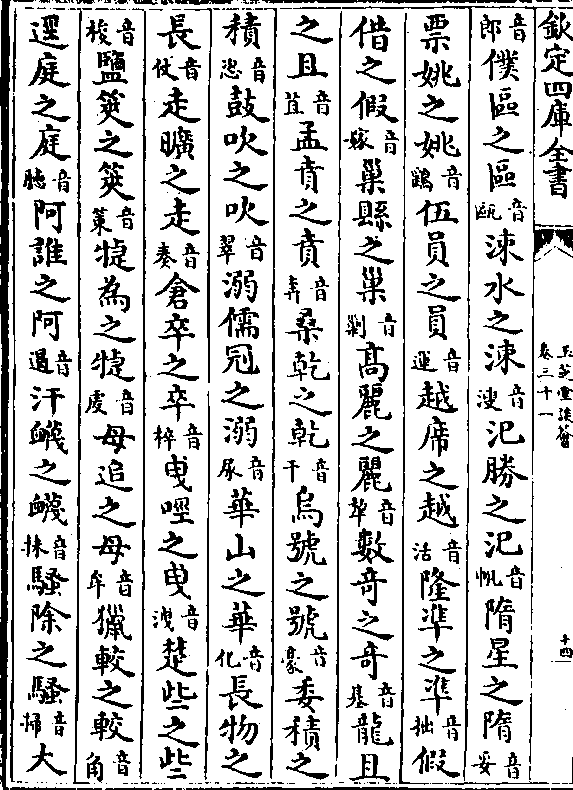 欽定四庫全書
玉芝堂談薈
卷三十一
十四
音郎僕區之區音甌涑水之涑音溲汜勝之汜音帆隋星之隋音妥
票姚之姚音鷂伍員之員音運越席之越音活隆準之準音拙假
借之假音嫁巢縣之巢音剿高麗之麗音犂數奇之奇音基龍且
之且音苴孟賁之賁音奔桑乾之乾音干烏號之號音豪委積之
積音恣鼓吹之吹音翠溺儒冠之溺音尿華山之華音化長物之
長音仗走曠之走音奏倉卒之卒音猝曳咥之曳音洩楚些之些
音梭鹽筴之筴音策犍為之犍音虔母追之母音牟獵較之較音角
逕庭之庭音聽阿誰之阿音遏汗衊之衊音抹騷除之騷音掃大